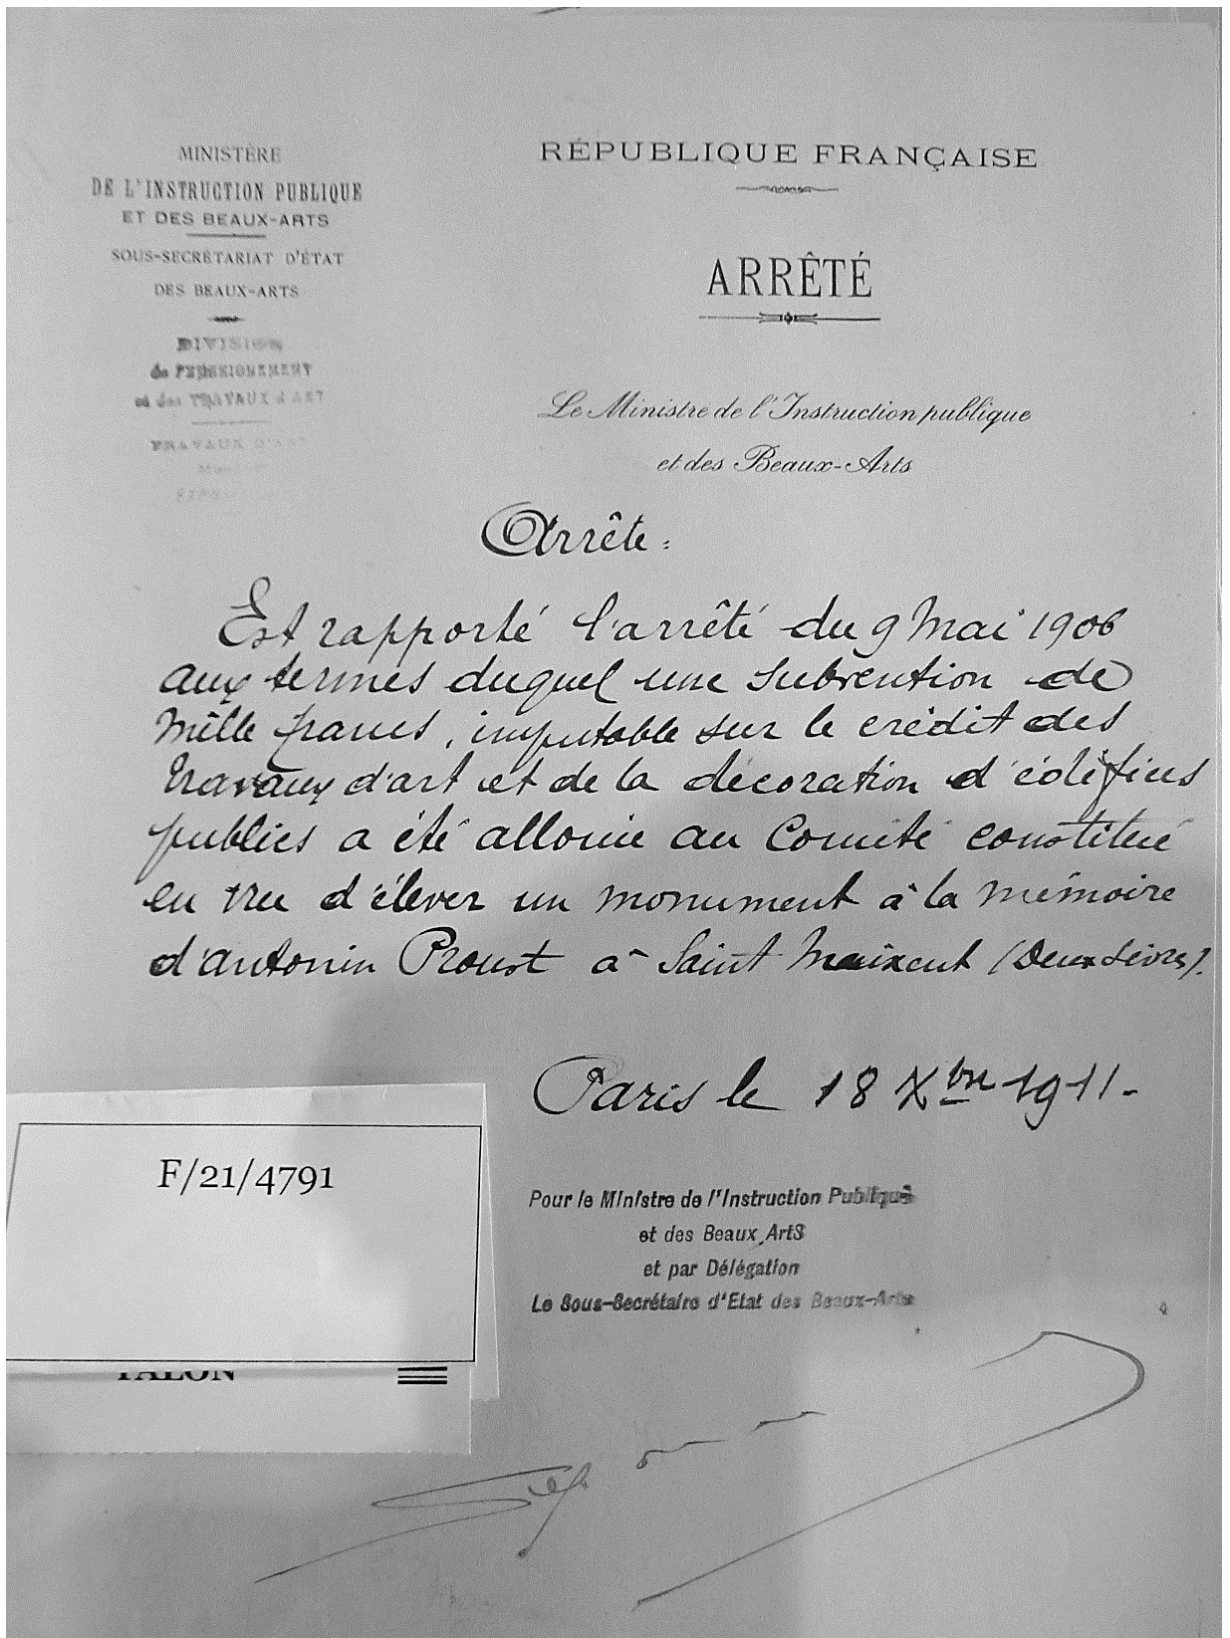 MINISTÈRE
DE L'INSTRUCTION PUBLIQUE
ET DES BEAUX-ARTS
SOUS-SECRÉTARIAT D'ÉTAT
DES BEAUX-ARTS
DIVISION
de l'ENSEIGNEMENT
et des TRAVAUX d'ART
TRAVAUX D'ART
RÉPUBLIQUE FRANÇAISE
ARRÊTÉ
Le Ministre de l'Instruction publique
et des Beaux-Arts
Arrête :
Est rapporté l'arrêté du 9 Mai 1906
aux termes duquel une subvention de
Mille francs, imputable sur le crédit des
travaux d'art et de la décoration d'édifices
publics a été allouée au Comité constitué
en vue d'élever un monument à la mémoire
d'Antonin Proust à Saint-Maixent (Deux Sèvres).
Paris le 18 Xbre 1911.
Pour le Ministre de l'Instruction Publique
et des Beaux Arts
et par Délégation
Le Sous-Secrétaire d'Etat des Beaux-Arts
F/21/4791
TALON